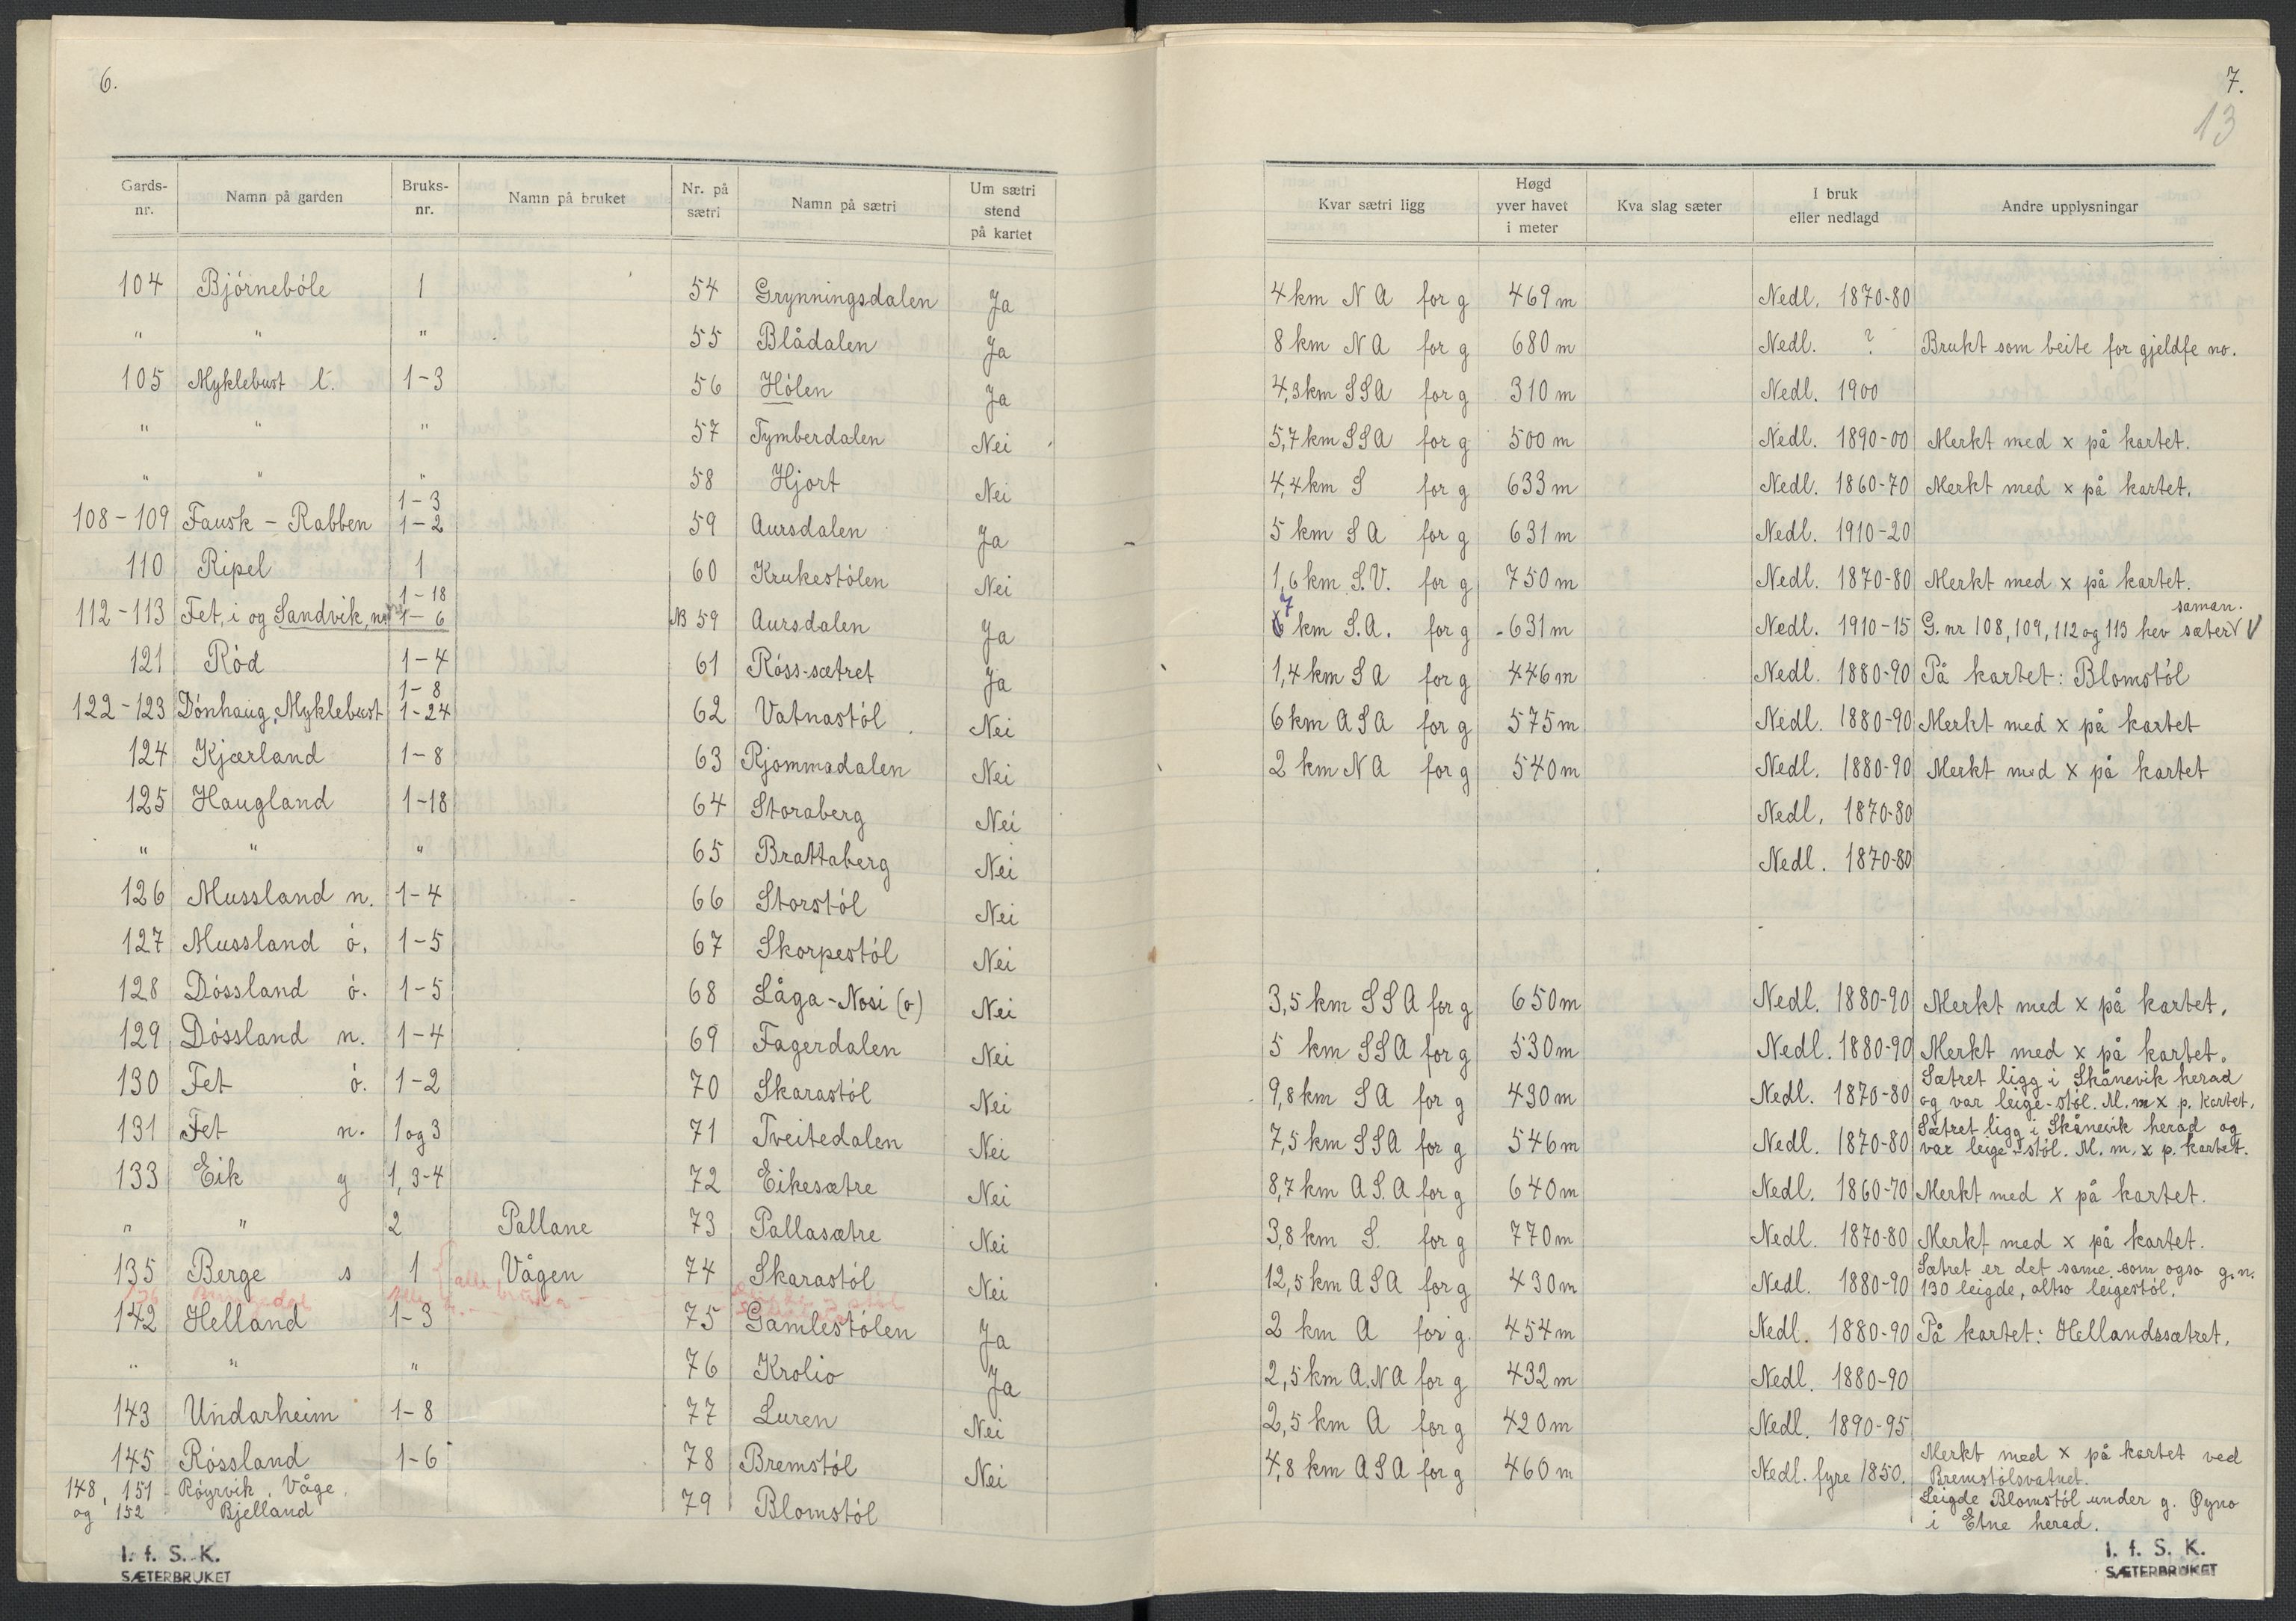 6.
Gards-nr. Namn på garden Bruks-nr. Namn på bruket Nr. på sætri Namn på sætri Um sætri stend på kartet
104 Bjørnebøle 1 54 Grynningsdalen Ja
" " " 55 Blådalen Ja
105 Myklebust l. 1-3 56 Hólen Ja
" " " 57 Tymberdalen Nei
" " " 58 Hjort Nei
108-109 Fausk - Rabben 1-3 1-2 59 Aursdalen Ja
110 Ripel 1 60 Krukestólen Nei
112-113 Fet, i og Sandvik, 1-18 1-6 NB 59 Aursdalen Ja
121 Ród 1-4 61 Róss-sætret Ja
122-123 Dónhaug, Myklebust 1-8 1-24 62 Vatnastól Nei
124 Kjærland 1-8 63 Rjommadalen Nei
125 Haugland 1-18 64 Storaberg Nei
" " " 65 Brattaberg Nei
126 Mussland n. 1-4 66 Storstól Nei
127 Mussland ó. 1-5 67 Skorpestól Nei
128 Dóssland ó. 1-5 68 Låga-Nosi (o) Nei
129 Dóssland n. 1-4 69 Fagerdalen Nei
130 Fet ó. 1-2 70 Skarastól Nei
131 Fet n. 1 og 3 71 Tveitedalen Nei
133 Eik g 1, 3-4 72 Eikesætre Nei
" " 2 Pallane 73 Pallasætre Nei
135 Berge s 1 Vågen 74 Skarastól Nei
142 Helland 1-3 75 Gamlestólen Ja
" " " 76 Krolio Ja
143 Undarheim 1-8 77 Luren Nei
145 Róssland 1-6 78 Bremstól Nei
148, 151 og 152 Róyrvik, Våge, Bjelland 79 Blomstól
I. f. S. K.
SÆTERBRUKET
7.
13
Kvar sætri ligg Høgd yver havet i meter Kva slag sæter I bruk eller nedlagd Andre upplysningar
4 km N A for g 469 m Nedl. 1870-80
8 km N A for g 680 m Nedl. ? Brukt som beite for gjeldfe no.
4,3 km S S A for g 310 m Nedl. 1900
5,7 km S S A for g 500 m Nedl. 1890-00 Merkt med x på kartet.
4,4 km S for g 633 m Nedl. 1860-70 Merkt med x på kartet.
5 km S A for g 631 m Nedl. 1910-20
1,6 km S.V. for g 750 m Nedl. 1870-80 Merkt med x på kartet.
7 km S.A. for g -631 m Nedl. 1910-15 G.nr 108, 109, 112 og 113 hev sæter saman. V
1,4 km S A for g 446 m Nedl. 1880-90 På kartet: Blomstól
6 km A S A for g 575 m Nedl. 1880-90 Merkt med x på kartet
2 km N A for g 540 m Nedl. 1880-90 Merkt med x på kartet
Nedl. 1870-80
Nedl. 1870-80
3,5 km S S A for g 650 m Nedl. 1880-90 Merkt med x på kartet.
5 km S S A for g 530 m Nedl. 1880-90 Merkt med x på kartet.
9,8 km S A for g 430 m Nedl. 1870-80 Sætret ligg i Skånevik herad og var leige-stól. M. m x p. kartet.
7,5 km S S A for g 546 m Nedl. 1870-80 Sætret ligg i Skånevik herad og var leige-stól. M. m. x p. kartet.
8,7 km A S. A for g 640 m Nedl. 1860-70 Merkt med x på kartet.
3,8 km S. for g 770 m Nedl. 1870-80 Merkt med x på kartet.
12,5 km A S A for g 430 m Nedl. 1880-90 Sætret er det same som ogso g.n. 130 leigde, altso leigestól.
2 km A for g. 454 m Nedl. 1880-90 På kartet: Hellandssætret.
2,5 km A. N A for g 432 m Nedl. 1880-90
2,5 km A for g 420 m Nedl. 1890-95
4,8 km A S A for g 460 m Nedl. fyre 1850. Merkt med x på kartet ved Bremstólsvatnet.
Leigde Blomstól under g. Øyno
i Etne herad.
I. f. S. K.
SÆTERBRUKET